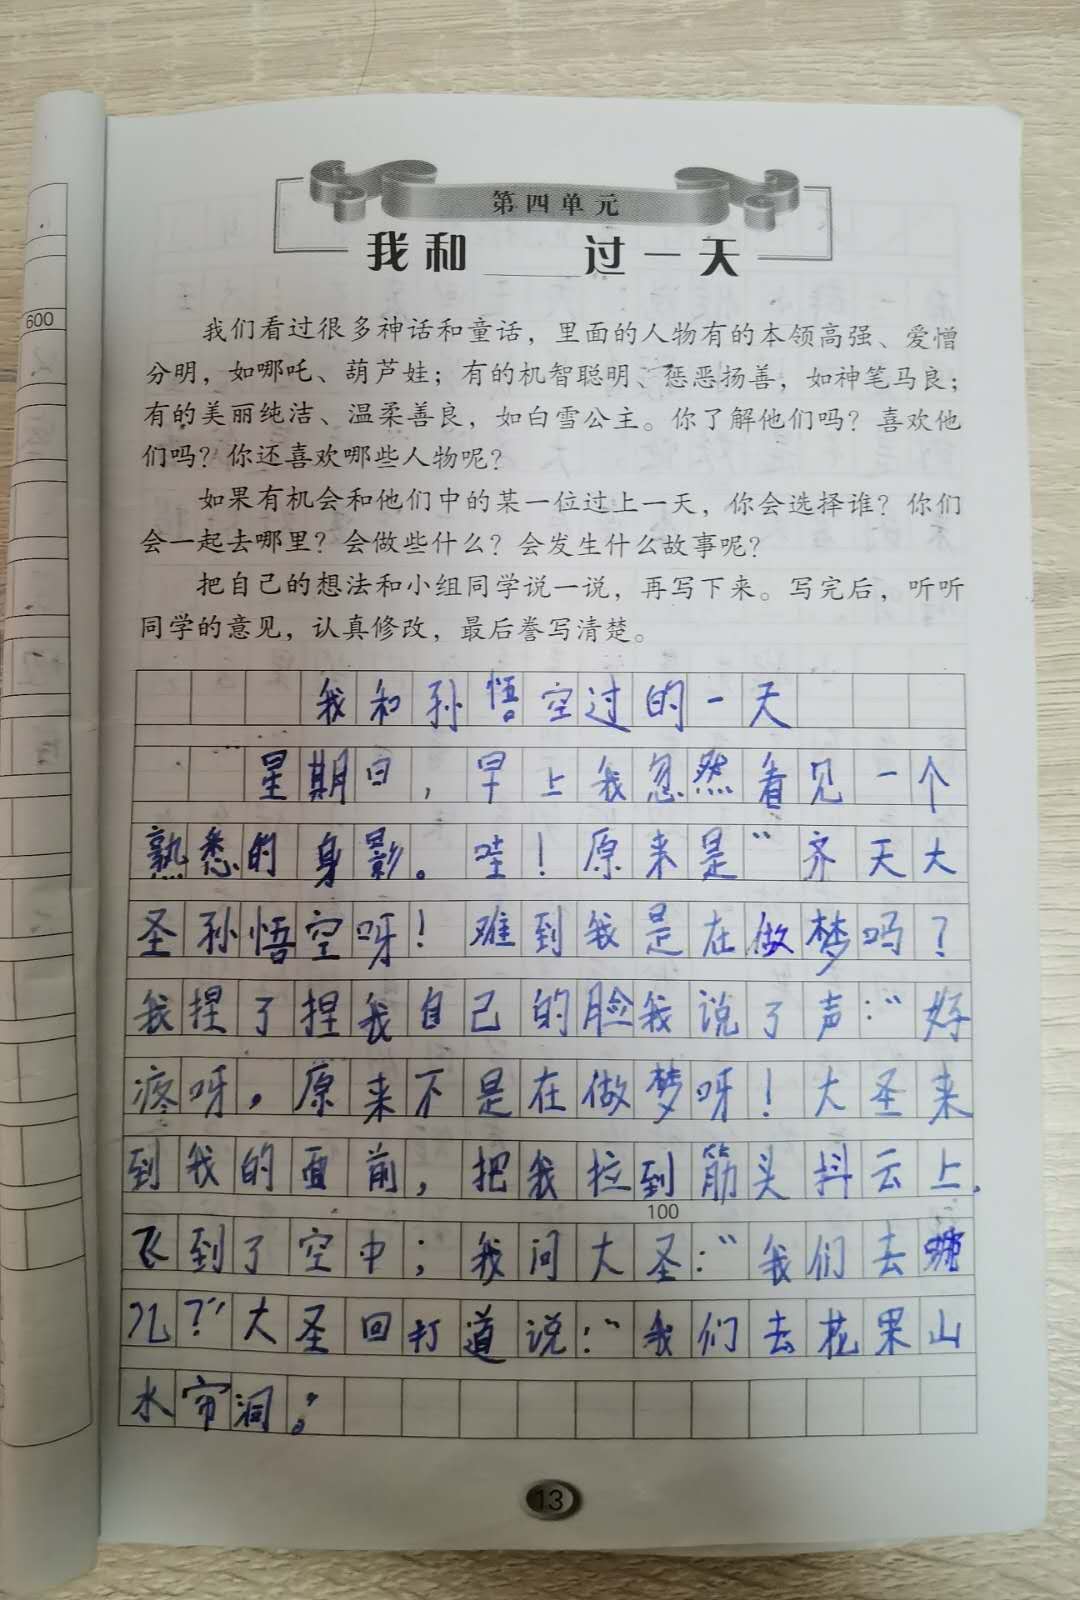 600
第四单元
我和____过一天
我们看过很多神话和童话，里面的人物有的本领高强、爱憎
分明，如哪吒、葫芦娃；有的机智聪明、惩恶扬善，如神笔马良；
有的美丽纯洁、温柔善良，如白雪公主。你了解他们吗？喜欢他
们吗？你还喜欢哪些人物呢？
如果有机会和他们中的某一位过上一天，你会选择谁？你们
会一起去哪里？会做些什么？会发生什么故事呢？
把自己的想法和小组同学说一说，再写下来。写完后，听听
同学的意见，认真修改，最后誊写清楚。
我和孙悟空过的一天
星期日，早上我忽然看见一个
熟悉的身影。哇！原来是“齐天大
圣孙悟空呀！难到我是在做梦吗？
我捏了捏我自己的脸我说了声：“好
疼呀，原来不是在做梦呀！大圣来
到我的面前，把我拉到筋头抖云上，
100
飞到了空中；我问大圣：“我们去
儿？”大圣回打道说：“我们去花果山
水帘洞。”
13